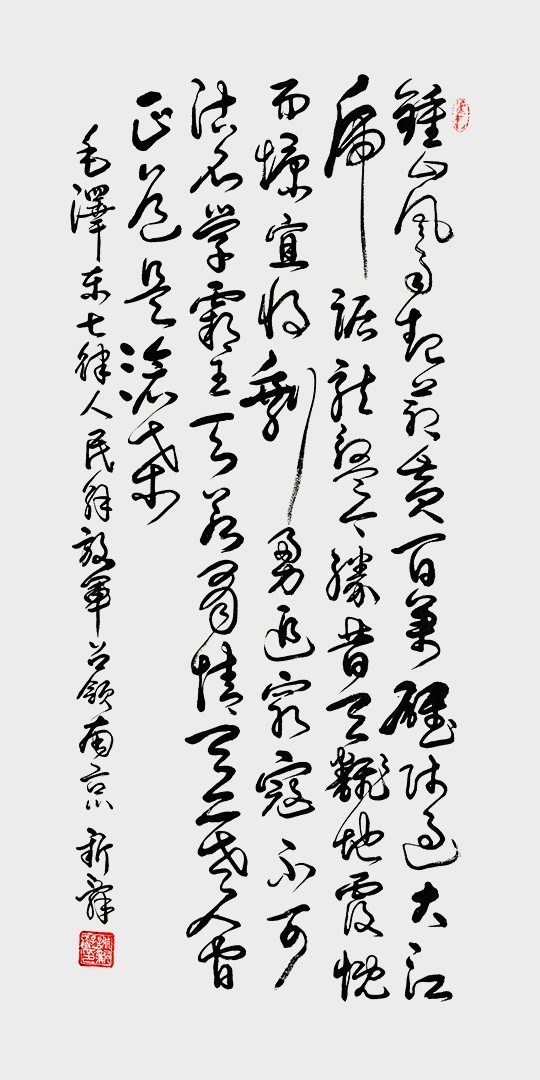 鍾山風雨起蒼黄百萬雄师過大江
虎踞龙盤今勝昔天翻地覆慨
而慷宜将剩勇追窮寇不可
沽名学霸王天若有情天亦老人间
正道是滄桑
毛澤东七律人民解放軍占領南京 新